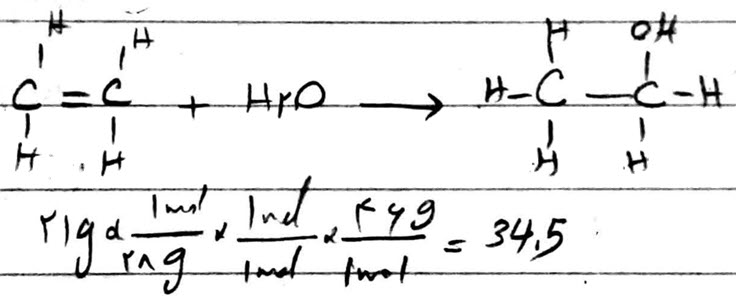 H H H OH
C = C + H₂O ⟶ H-C — C-H
H H H H
۲۱g × 1mol/۲۸g × 1mol/1mol × ۴۶g/1mol = 34,5